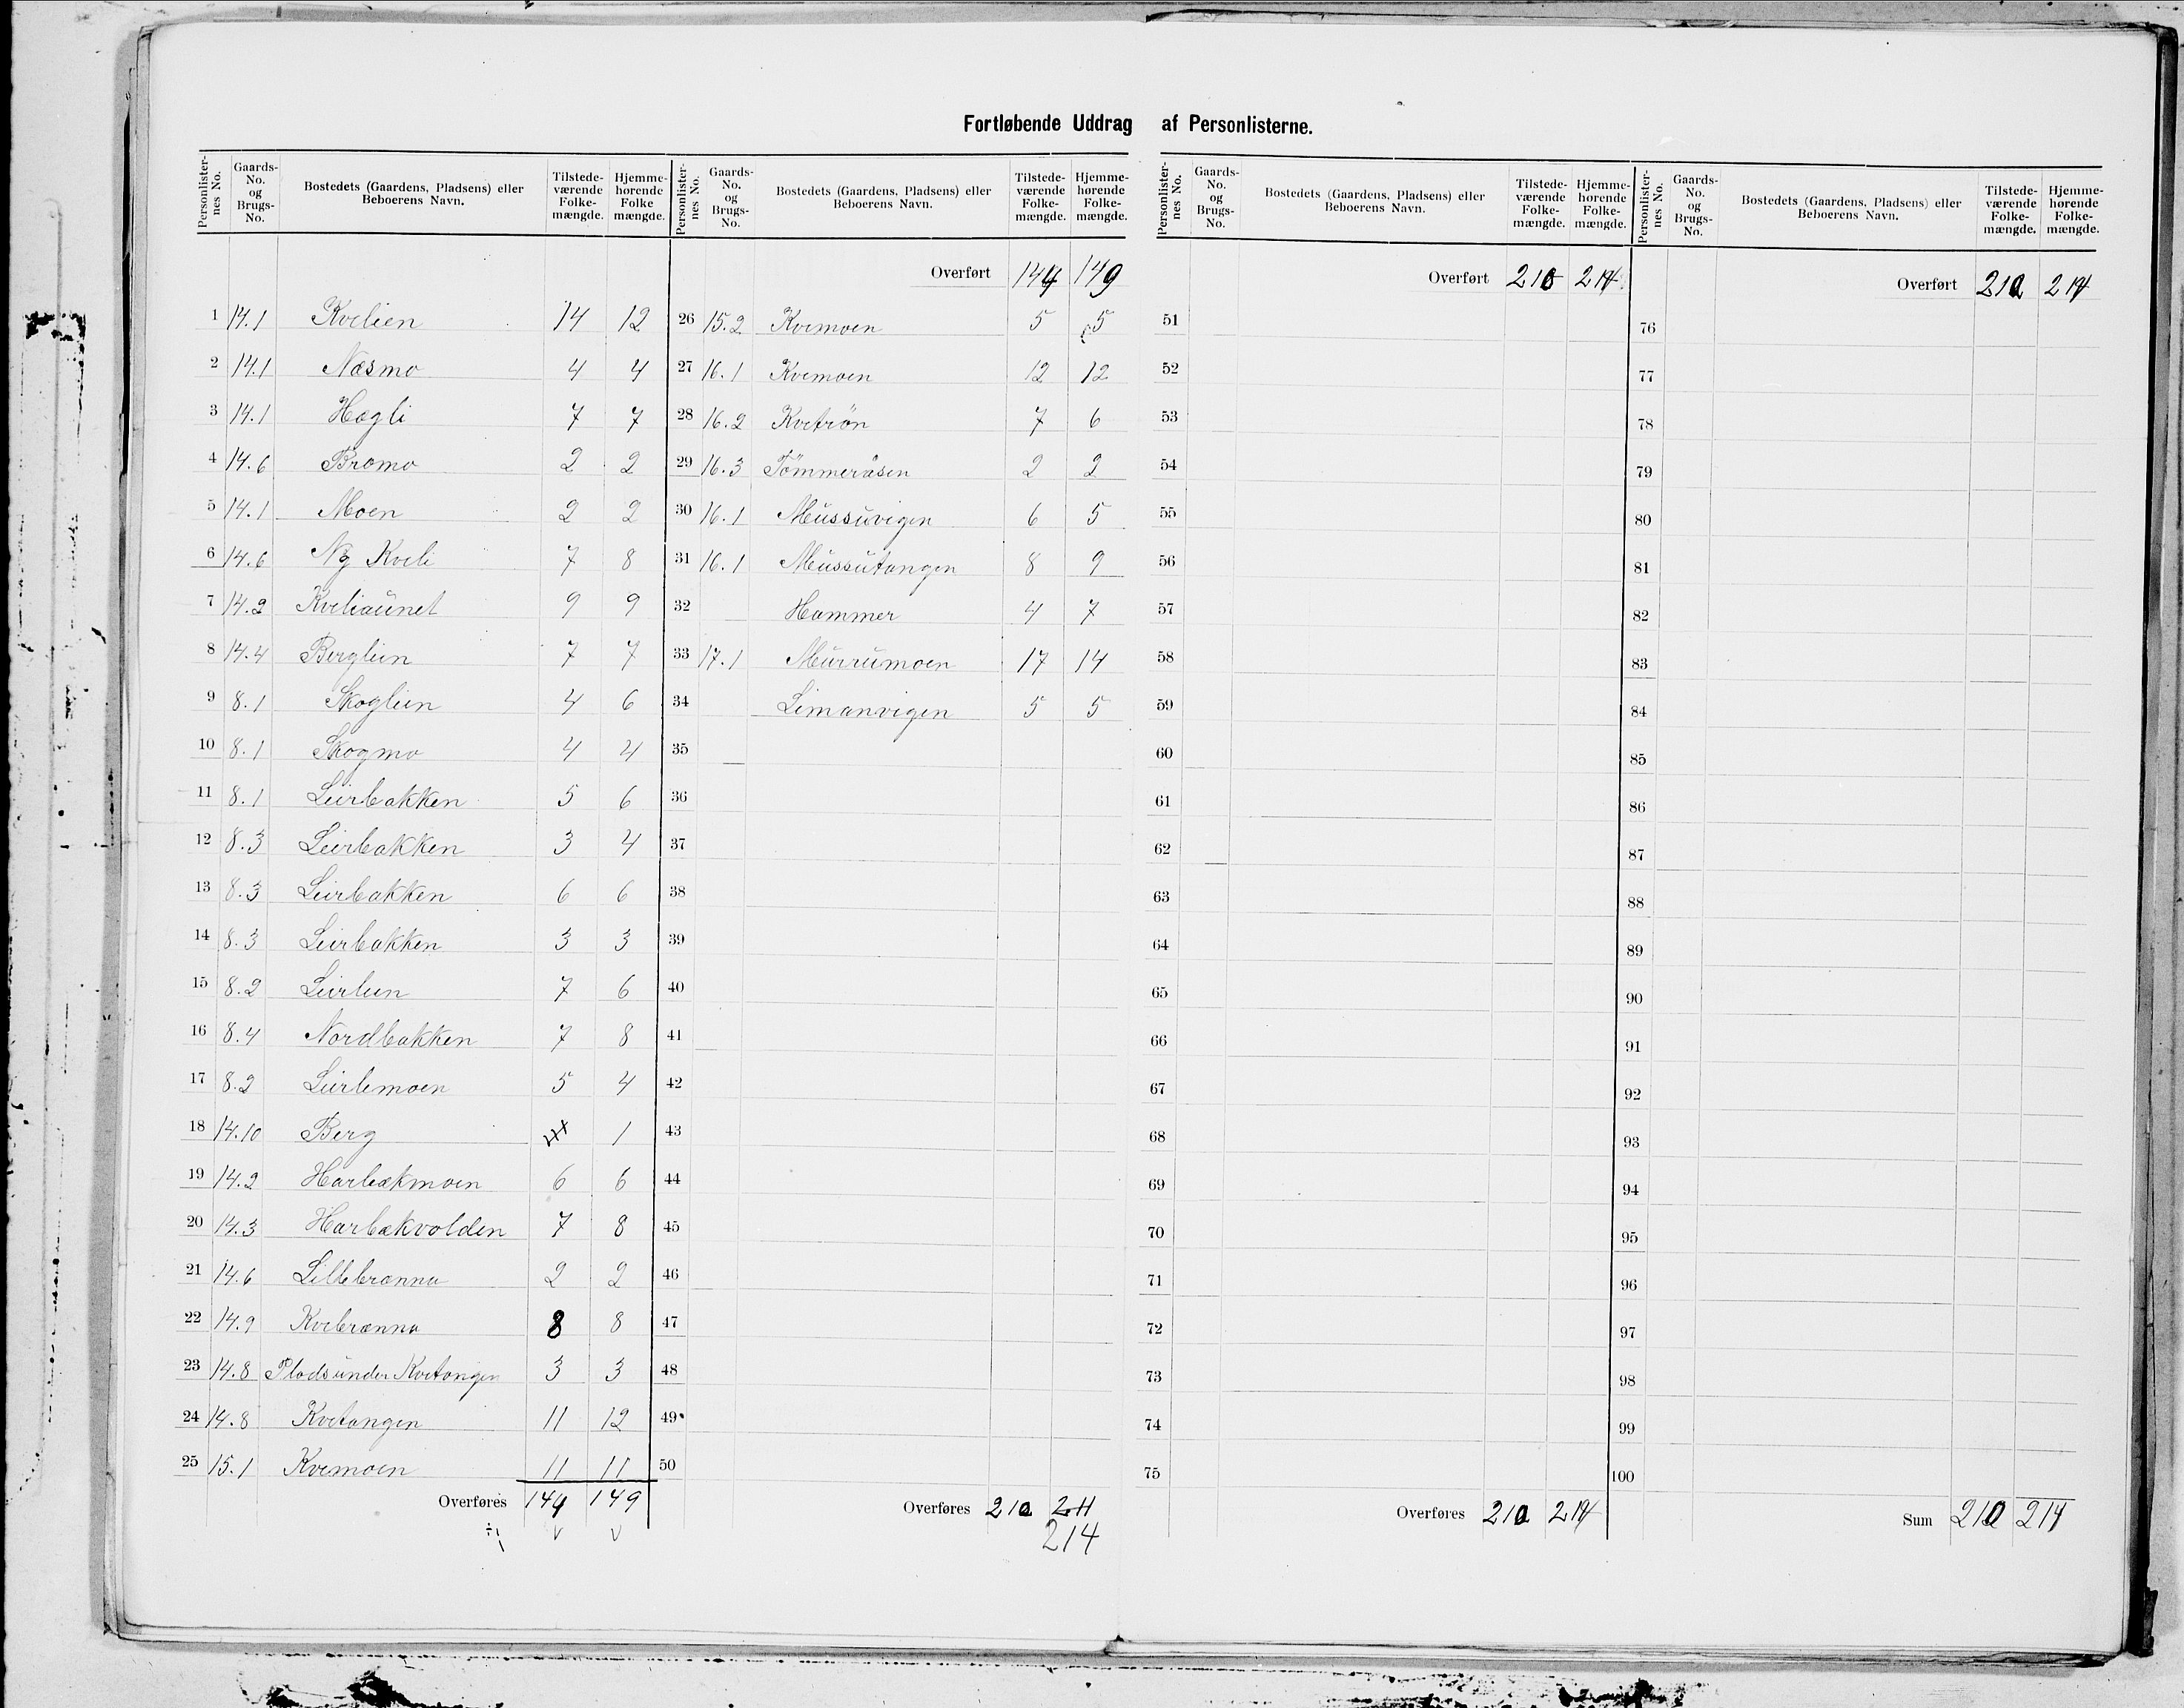 Fortløbende Uddrag af Personlisterne.
Personlister-nes No. Gaards-No. og Brugs-No. Bostedets (Gaardens, Pladsens) eller Beboerens Navn. Tilstede-værende Folke-mængde. Hjemme-hørende Folke mængde.
1 14.1 Kvelien 14 12
2 14.1 Næsmo 4 4
3 14.1 Hægli 7 7
4 14.6 Bromo 2 2
5 14.1 Moen 2 2
6 14.6 Ny Kveli 7 8
7 14.2 Kveliaunet 9 9
8 14.4 Berglien 7 7
9 8.1 Skoglien 4 6
10 8.1 Skogmo 4 4
11 8.1 Leirbakken 5 6
12 8.3 Leirbakken 3 4
13 8.3 Leirbakken 6 6
14 8.3 Leirbakken 3 3
15 8.2 Leirlien 7 6
16 8.4 Nordbakken 7 8
17 8.2 Leirlimoen 5 4
18 14.10 Berg 1
19 14.2 Harbækmoen 6 6
20 14.3 Harbækvolden 7 8
21 14.6 Lillebrænna 2 2
22 14.9 Kvebrænna 8 8
23 14.8 Plads under Kvetangen 3 3
24 14.8 Kvetangen 11 12
25 15.1 Kvemoen 11 11
Overføres 144 149
÷1 v v
Personlister-nes No. Gaards-No. og Brugs-No. Bostedets (Gaardens, Pladsens) eller Beboerens Navn. Tilstede-værende Folke-mængde. Hjemme-hørende Folke-mængde.
Overført 144 149
26 15.2 Kvemoen 5 5
27 16.1 Kvemoen 12 12
28 16.2 Kvetrön 7 6
29 16.3 Tömmeråsen 2 2
30 16.1 Mussuvigen 6 5
31 16.1 Mussutangen 8 9
32 Hammer 4 7
33 17.1 Murrumoen 17 14
34 Limanvigen 5 5
35
36
37
38
39
40
41
42
43
44
45
46
47
48
49
50
Overføres 210 211
214
Personlister-nes No. Gaards-No. og Brugs-No. Bostedets (Gaardens, Pladsens) eller Beboerens Navn. Tilstede-værende Folke-mængde. Hjemme-hørende Folke-mængde.
Overført 210 214
51
52
53
54
55
56
57
58
59
60
61
62
63
64
65
66
67
68
69
70
71
72
73
74
75
Overføres 210 214
Personlister-nes No. Gaards-No. og Brugs-No. Bostedets (Gaardens, Pladsens) eller Beboerens Navn. Tilstede-værende Folke-mængde. Hjemme-hørende Folke-mængde.
Overført 210 214
76
77
78
79
80
81
82
83
84
85
86
87
88
89
90
91
92
93
94
95
96
97
98
99
100
Sum 210 214